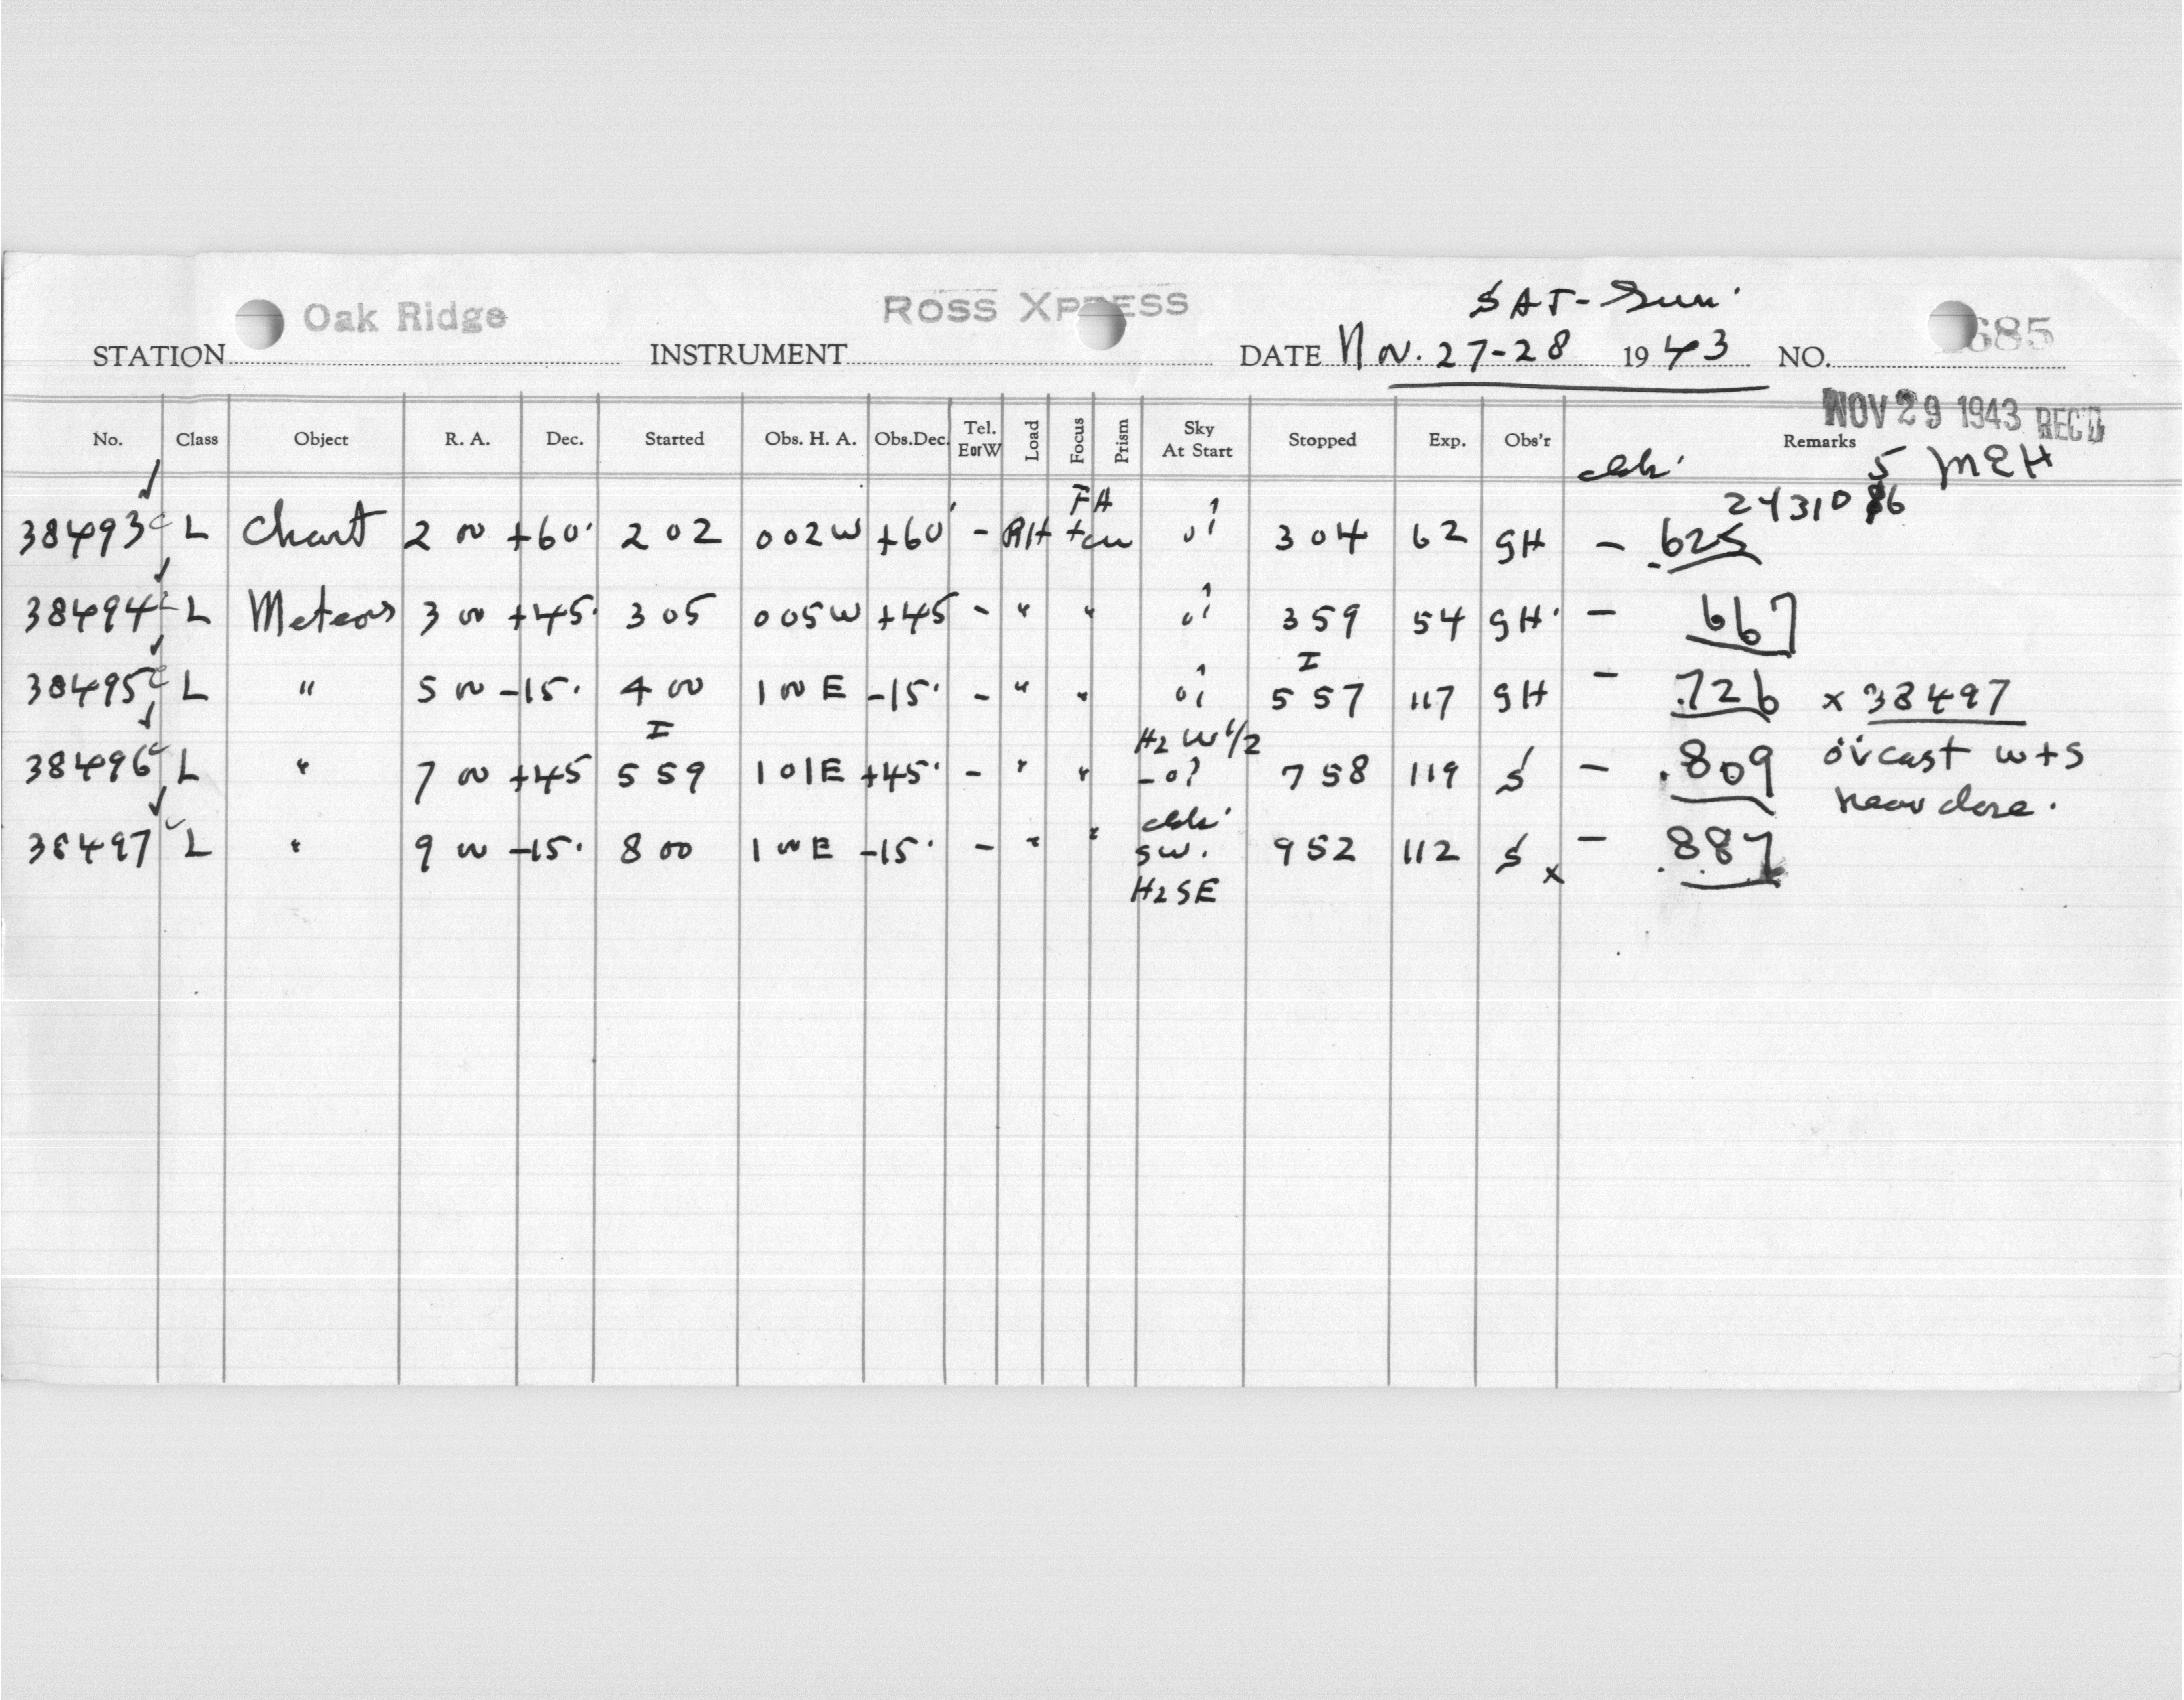 SAT-Sun.
Oak Ridge ROSS XPRESS 685
STATION INSTRUMENT DATE Nov. 27-28 1943 NO.
NOV 29 1943 REC'D
No. Class Object R. A. Dec. Started Obs. H. A. Obs.Dec. Tel. E or W Load Focus Prism Sky At Start Stopped Exp. Obs'r Remarks
5 MEH
243108 6
FH
38493 L Chart 2 00 +60 2 02 0 02 W +60 - RH 3 04 62 GH - .625
38494 L Meteors 3 00 +45 3 05 0 05 W +45 - " " 3 59 54 GH - 667
I
38495 L " 5 00 -15 4 00 1 00 E -15 - " " 5 57 117 GH - .726 x 38497
I H2 W 1/2
38496 L " 7 00 +45 5 59 1 01 E +45 - " " 7 58 119 S - .809 ov'cast w+s
near close.
38497 L " 9 00 -15 8 00 1 00 E -15 - " " SW. 9 52 112 S x - .887
H2 SE